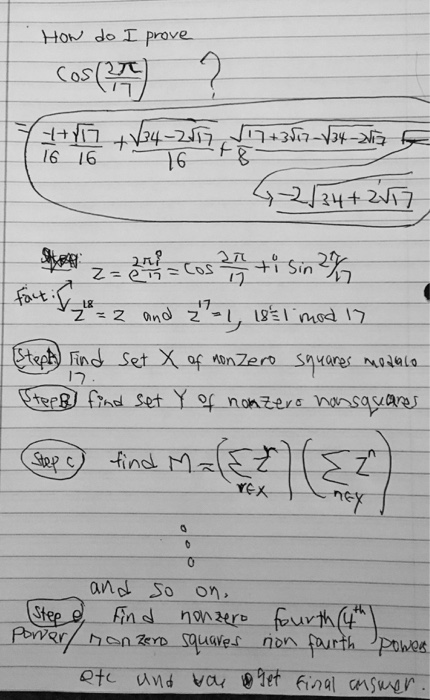 How do I prove
cos(2π/17) ?
= -1+√17/16 + √34-2√17/16 + √17+3√17-√34-2√17/8
→ -2√34+2√17
z = e^(2πi/17) = cos 2π/17 + i sin 2π/17
Fact: z^18 = z and z^17 = 1, 18≡1 mod 17
Step A) Find set X of nonzero squares modulo
17.
Step B) find set Y of nonzero nonsquares
Step C) find M = (Σ z^r r∈X) (Σ z^n n∈Y)
and so on.
Step e) Find nonzero fourth (4th)
power/nonzero squares non fourth power
etc and you get final answer.